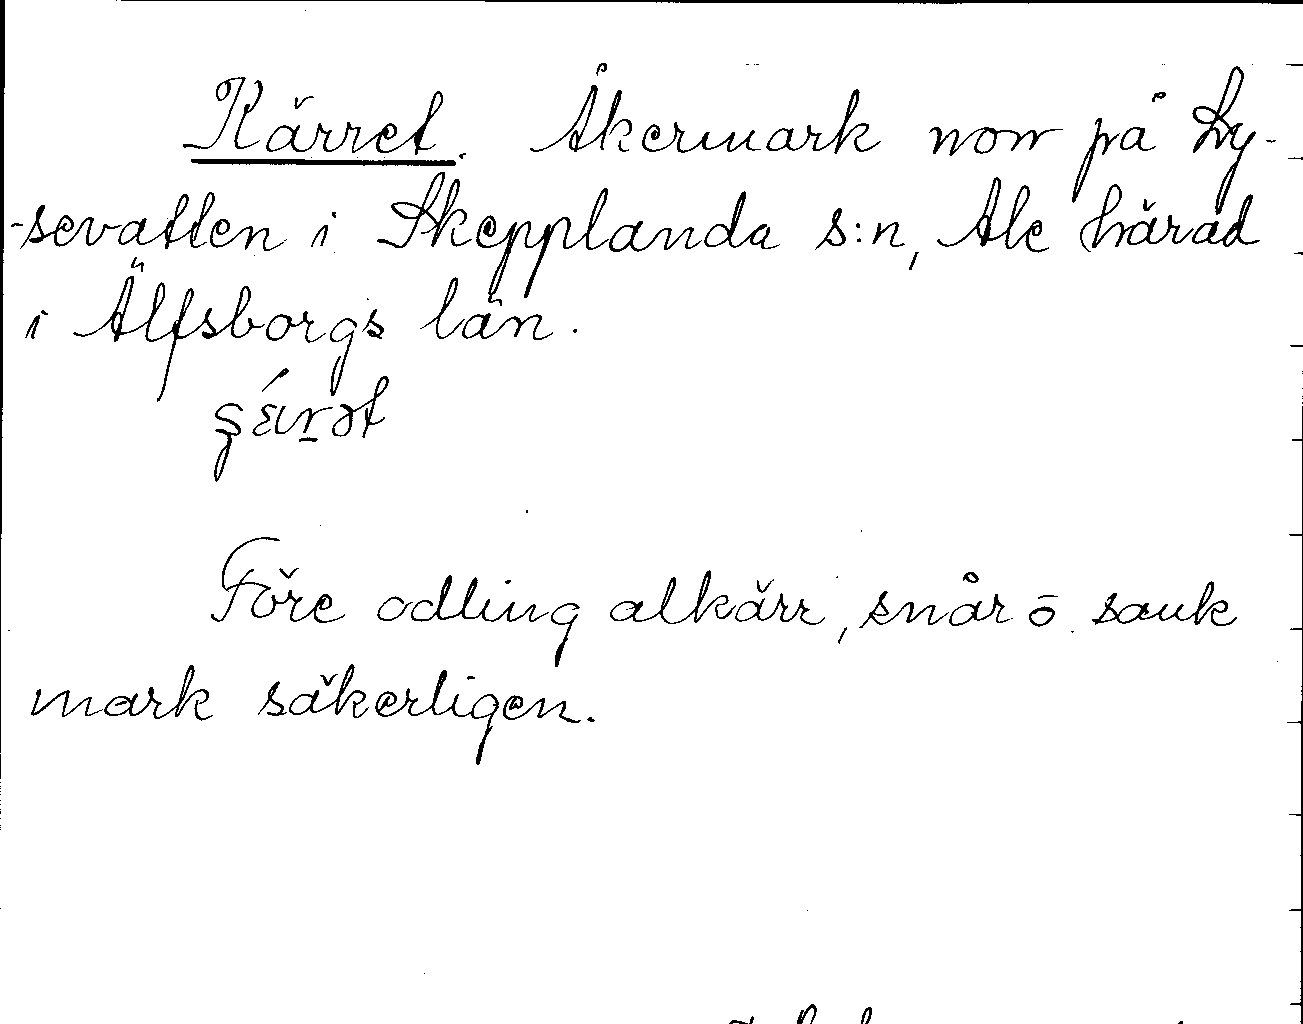 Kärret. Åkermark norr på Ly-
-sevatten i Skepplanda s:n, Ale härad
i Älfsborgs län.
Före odling alkärr, snår o sank
mark säkerligen.